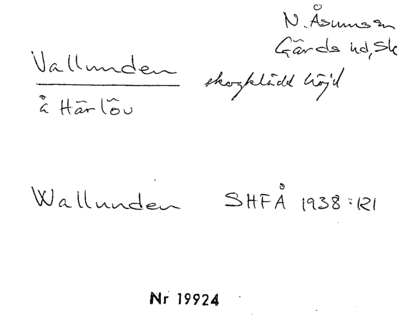 N. Åsumssn
Gärds hd, Sk
Vallunden skogklädd höjd
å Härlöv
Wallunden SHFÅ 1938:121
Nr 19924